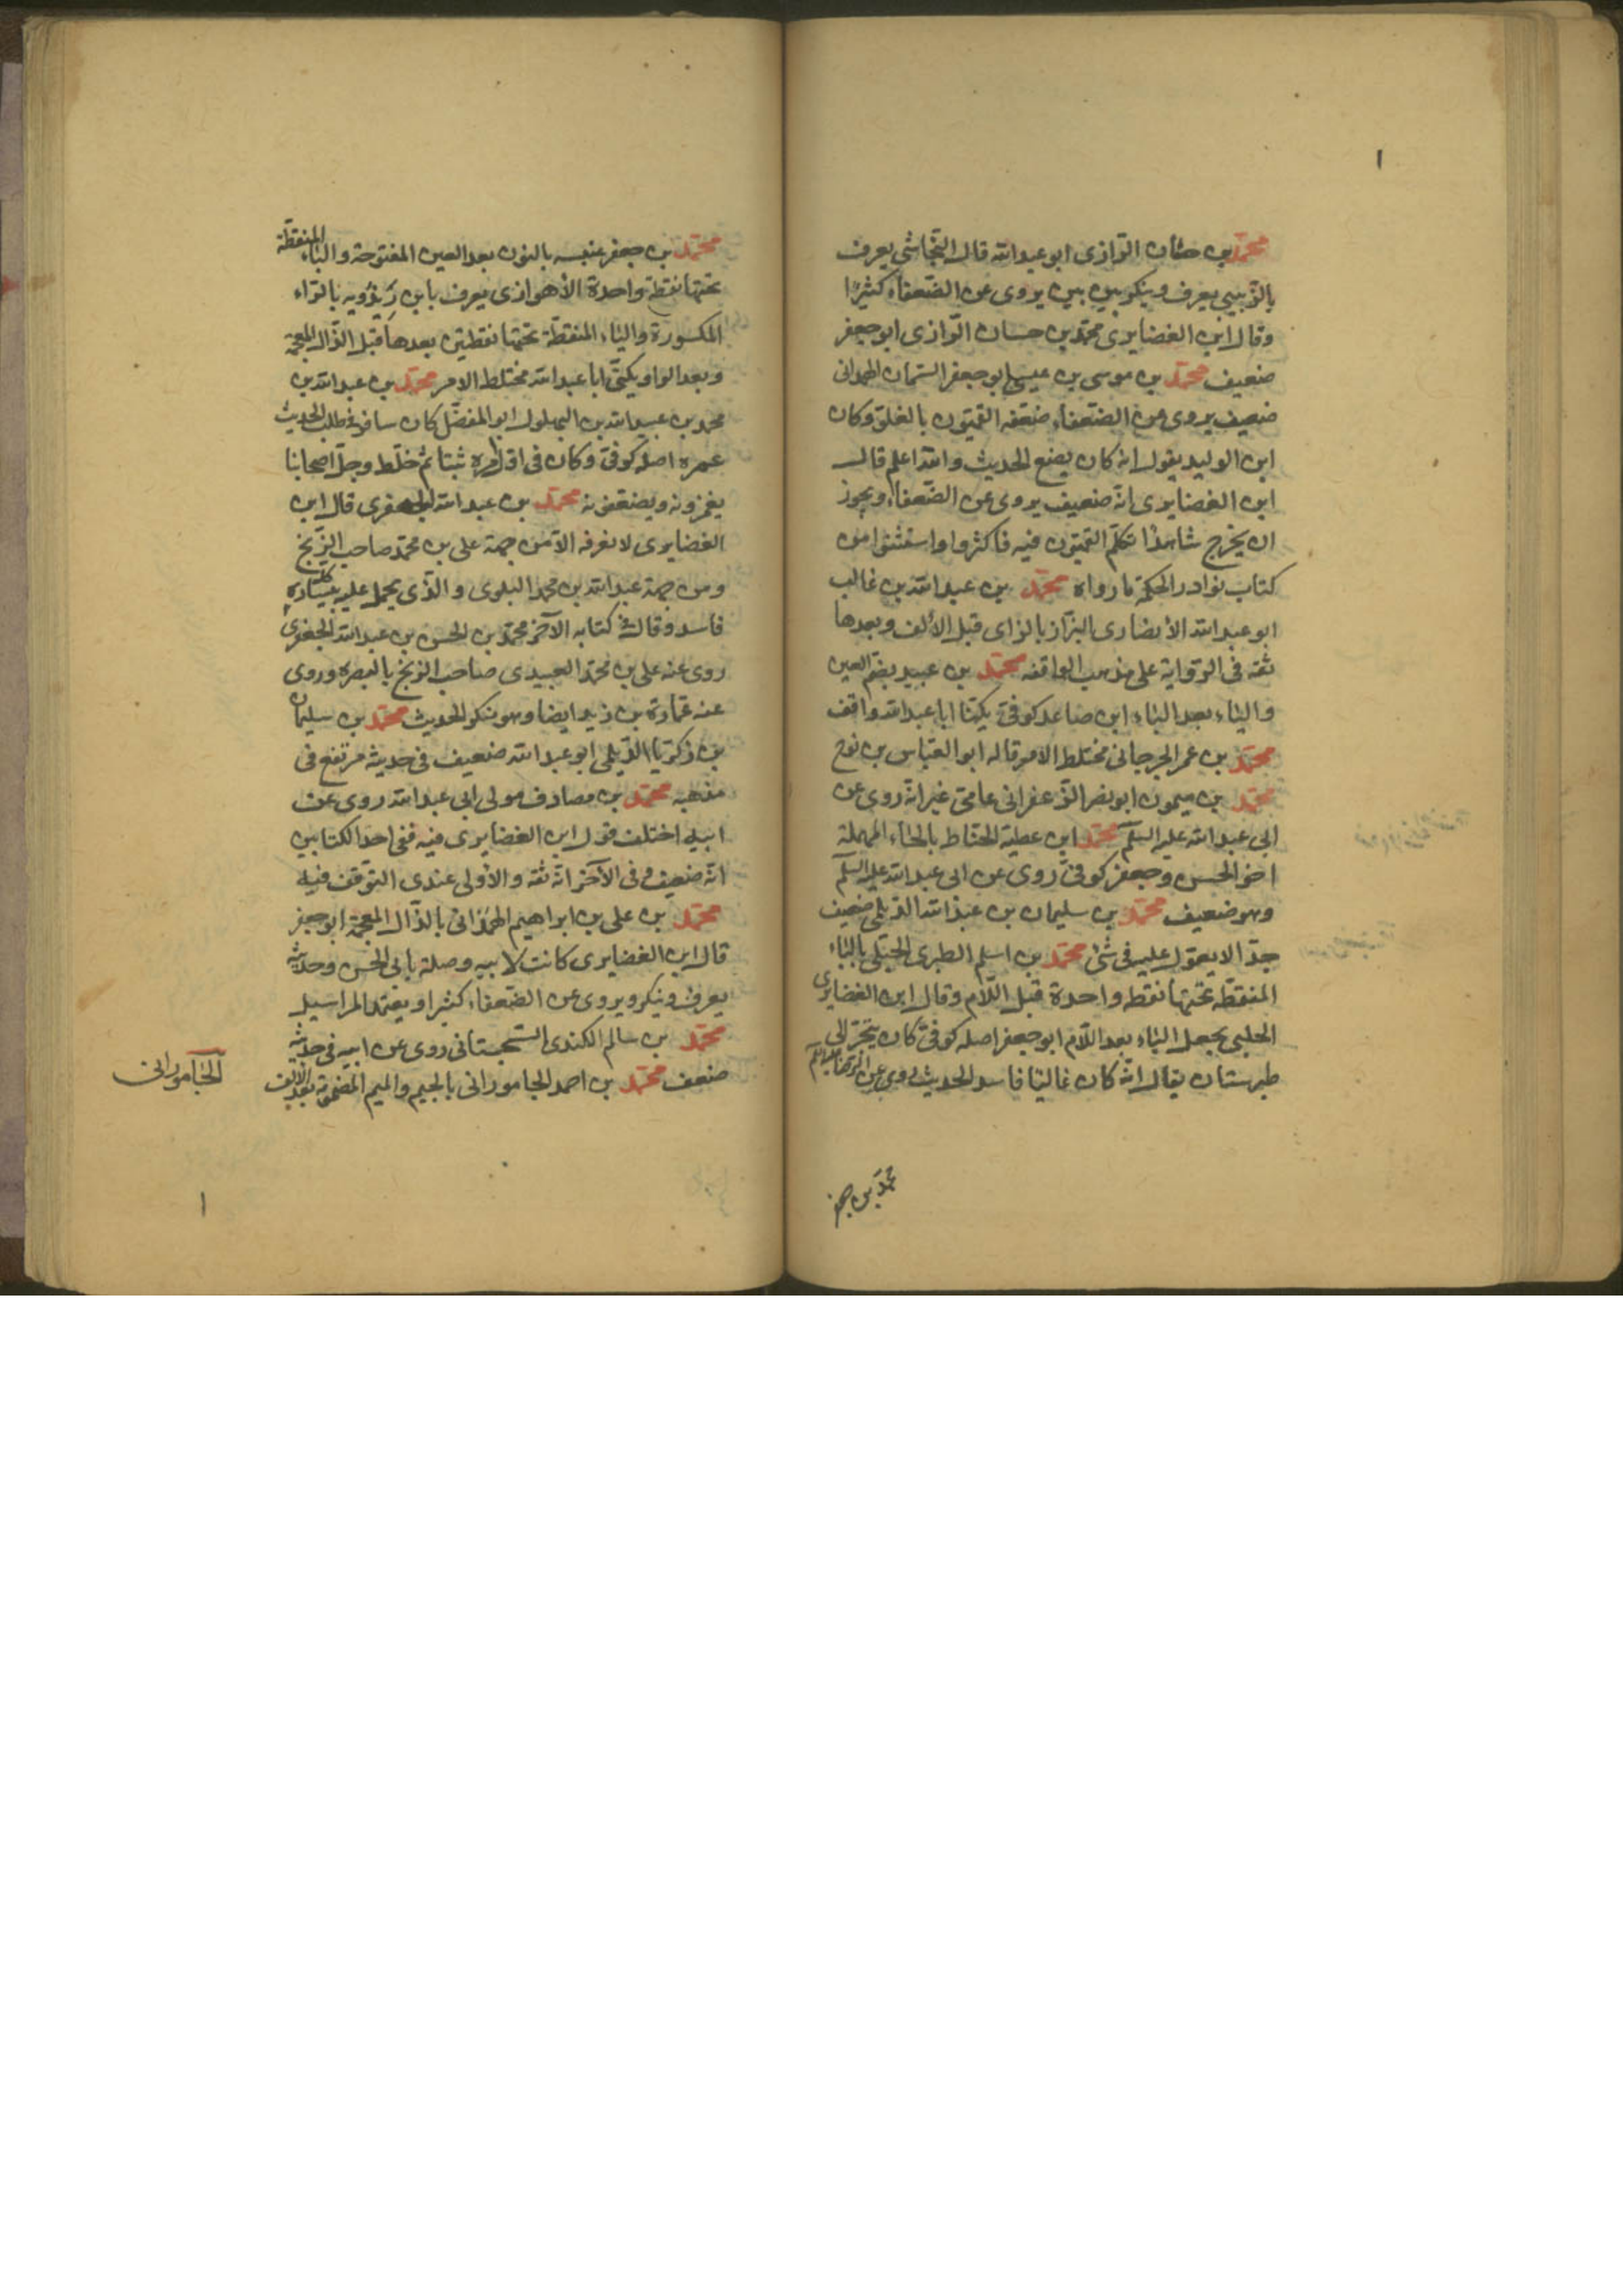 ١
محمّد بن حسّان الرّازى ابو عبدالله قال النّجاشى يعرف
بالزّبيبى يعرف وينكر بين بين يروى عن الضّعفاء كثيرًا
وقال ابن الغضايرى محمّد بن حسان الرّازى ابو جعفر
ضعيف محمّد بن موسى بن عيسى ابو جعفر السّمان الهمدانى
ضعيف يروى عن الضّعفاء ضعّفه القمّيون بالغلوّ وكان
ابن الوليد يقول انه كان يضع الحديث والله اعلم قال
ابن الغضايرى انّه ضعيف يروى عن الضّعفاء ويجوز
ان يخرج شاهدًا تكلّم القمّيون فيه فاكثروا واستثنوا من
كتاب نوادر الحكمة ما رواه محمّد بن عبدالله بن غالب
ابو عبدالله الأنصارى البزّاز بالزاى قبل الألف وبعدها
ثقه فى الرّواية على مذهب الواقفه محمّد بن عبيد بضم العين
والياء بعد الباء ابن صاعد كوفىّ يكنّا ابا عبدالله واقف
محمّد بن عمر الجرجانى مختلط الامر قاله ابو العبّاس بن نوح
محمّد بن ميمون ابو نصر الزّعفرانى عامىّ غير انّه روى عن
ابى عبدالله عليه السلم محمّد ابن عطية الحنّاط بالحاء المهملة
اخو الحسن وجعفر كوفىّ روى عن ابى عبدالله عليه السلم
وهو ضعيف محمّد بن سليمان بن عبدالله الدّيلمى ضعيف
جدّا لا يعوّل عليه فى شئ محمّد بن اسلم الطبرى الجبلى بالباء
المنقطه تحتها نقطه واحدة قبل اللّام وقال ابن الغضايرى
الحلبى بجعل الباء بعد اللّام ابو جعفر اصله كوفىّ كان يتّجر الى
طبرستان يقال انّه كان غاليّا فاسد الحديث روى عن الرّضا عليه السلم
محمّد بن جعفر
محمّد بن جعفر عنبسه بالنون بعد العين المفتوحة والباء المنقطّة
تحتها نقطة واحدة الأهوازى يعرف بابن رِيذويه بالرّاء
المكسورة والياء المنقطّة تحتها نقطتين بعدها قبل الذّال المعجمة
وبعد الواو يكنّى ابا عبدالله مختلط الامر محمّد بن عبدالله بن
محمد بن عبيدالله بن البهلول ابو المفضّل كان سافر فى طلب الحديث
عمره اصله كوفىّ وكان فى اوّل امره ثبتا ثم خلّط وجلّ اصحابنا
يغمزونه ويضعّفونه محمّد بن عبدالله الجعفرى قال ابن
الغضايرى لا نعرفه الّا من جهة على بن محمّد صاحب الزّنج
ومن جهة عبدالله بن محمد البلوى والذّى يحمل عليه سايره
فاسد وقال فى كتابه الآخر محمّد بن الحسن بن عبدالله الجعفرى
روى عنه على بن محمّد العبيدى صاحب الزنج بالبصره وروى
عنه عمّارة بن زيد ايضا وهو منكر الحديث محمّد بن سليمان
بن زكريّا الدّيلمى ابو عبدالله ضعيف فى حديثه مرتفع فى
مذهبه محمّد بن مصادف مولى ابى عبدالله روى عن
ابيه اختلف قول ابن الغضايرى فيه ففى احد الكتابين
انّه ضعيف وفى الآخر انّه ثقه والأولى عندى التوقّف فيه
محمّد بن على بن ابراهيم الهمذانى بالذّال المعجمة ابو جعفر
قال ابن الغضايرى كانت لابيه وصلة بابى الحسن وحديثه
يعرف وينكر ويروى عن الضّعفاء كثيرا ويعتمد المراسيل
محمّد بن سالم الكندى السّجستانى روى عن ابيه فى حديثه
ضعف محمّد بن احمد الجامورانى بالجيم والميم المضمومة بعد الالف
الجامورانى
١